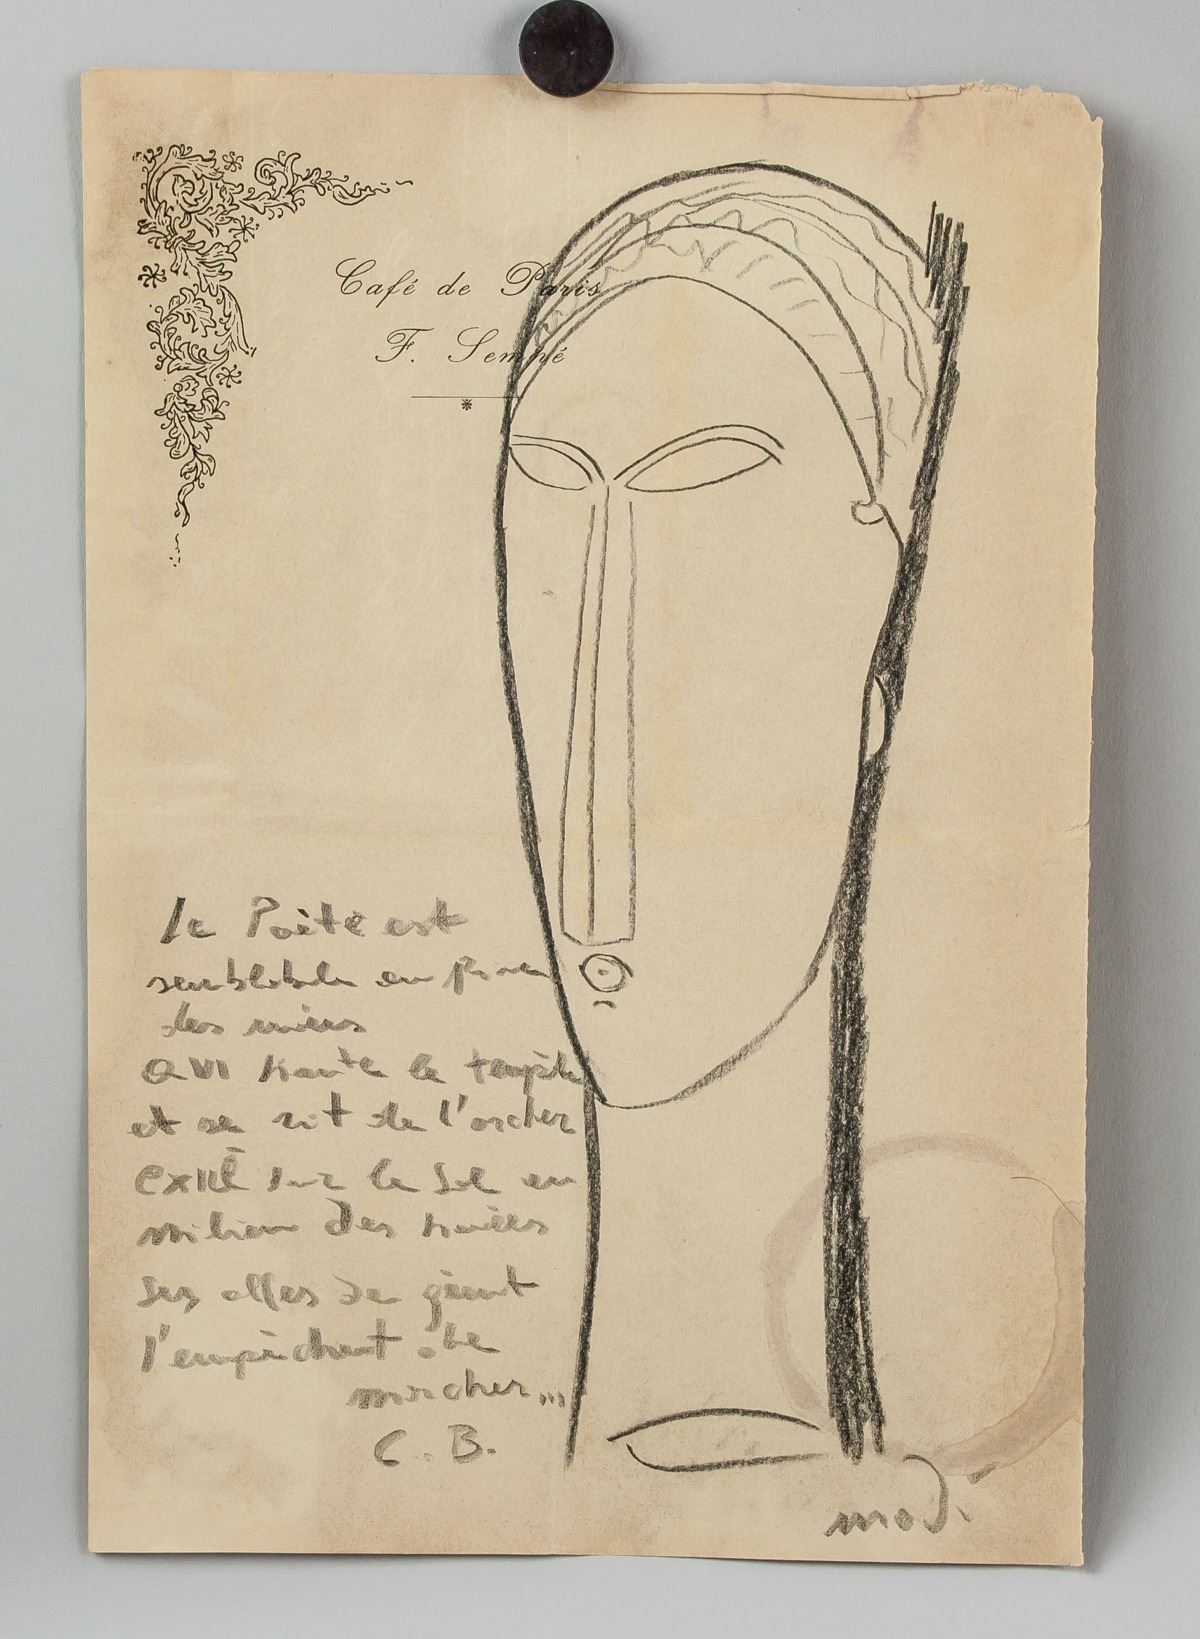 Café de Paris
F. Sempé
Le Poète est
semblable au prince
des nuées
QUI hante la tempête
et se rit de l'archer
EXILÉ sur le sol au
milieu des huées
ses ailes de géant
l'empêchent de
marcher...
C. B.
modi